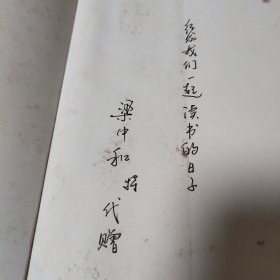 纪念我们一起读书的日子
梁中和 特
代赠